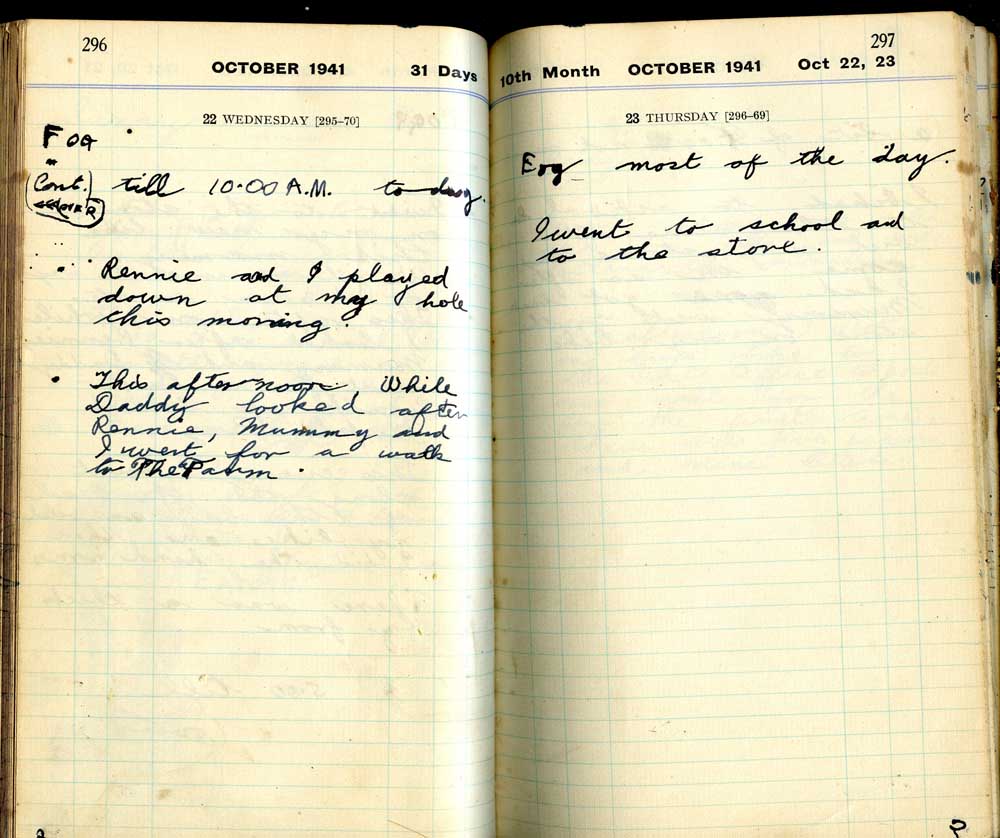 296
OCTOBER 1941 31 Days
22 WEDNESDAY [295–70]
Fog
(Cont.) till 10.00 A.M. to-day.
Rennie and I played
down at my hole
this morning.
This afternoon, While
Daddy looked after
Rennie, Mummy and
I went for a walk
to The Farm.
297
10th Month OCTOBER 1941 Oct 22, 23
23 THURSDAY [296–69]
Fog most of the day.
I went to school and
to the store.